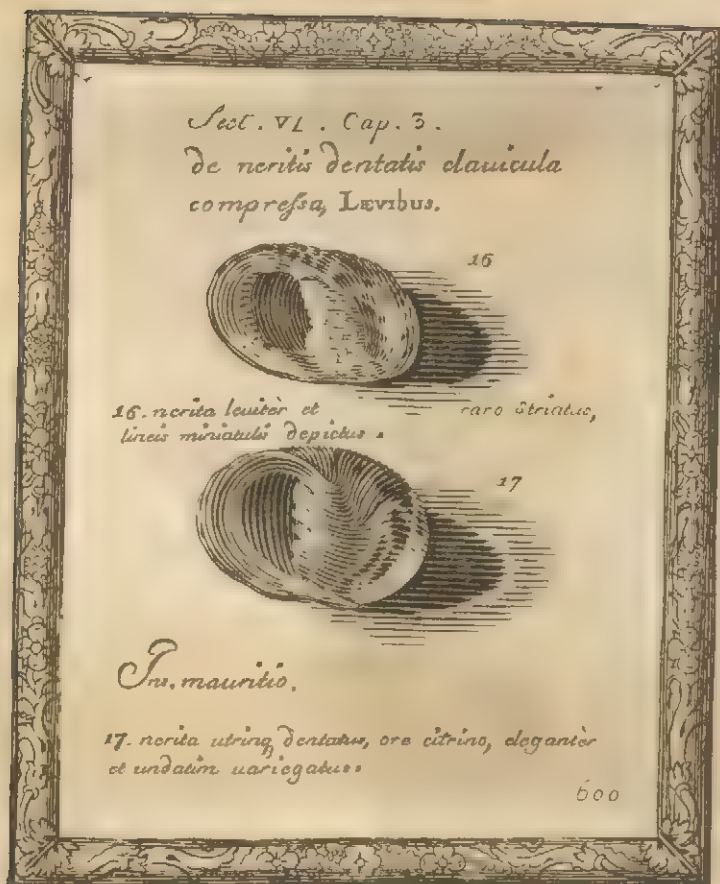 Sect. VI. Cap. 3.
De neritis dentatis clauicula
compreſsa, Lævibus.
16
16. nerita leuitèr et raro striatus,
lineis miniatulis depictus.
17
Ins. mauritio.
17. nerita utrinq dentatus, ore citrino, elegantèr
et undatim uariegatus.
600